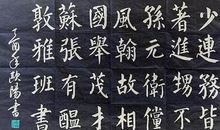 少連皆
甥不
孫元衛儻
風翰故相
國舉茂才
蘇張有醞
敦雅班書
丁酉年歐陽書